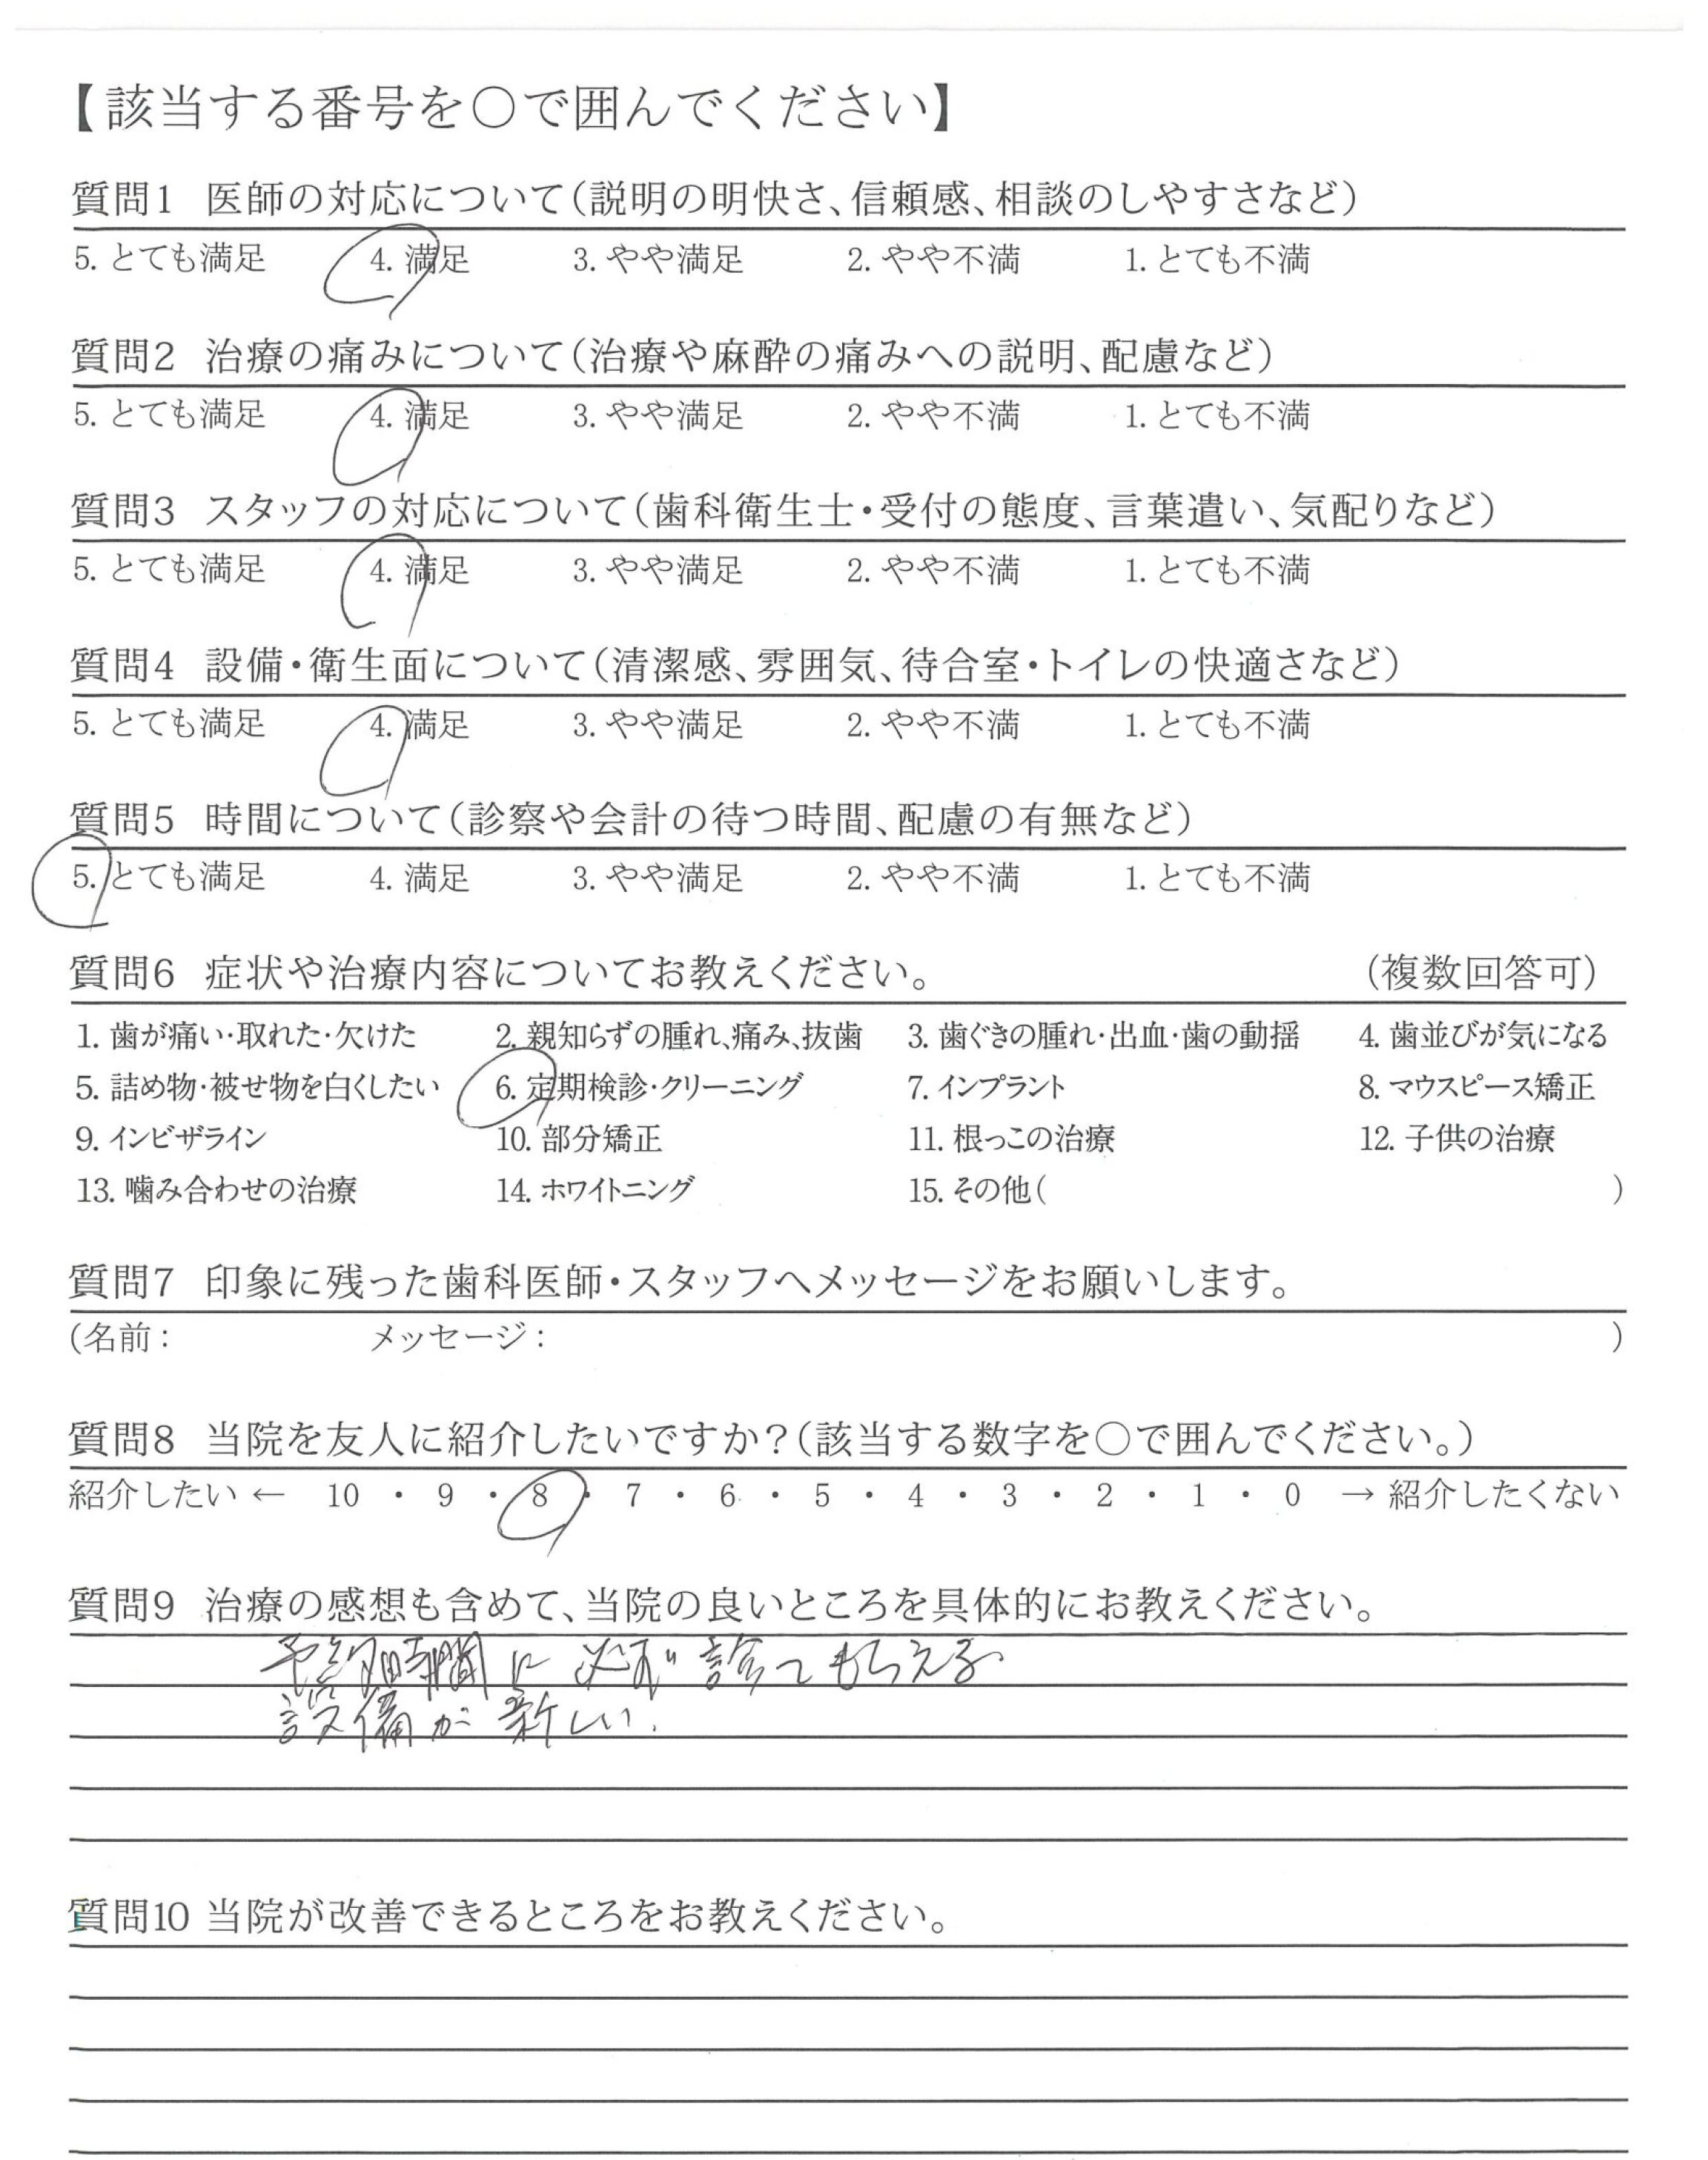 【該当する番号を〇で囲んでください】
質問1 医師の対応について(説明の明快さ、信頼感、相談のしやすさなど)
5. とても満足 4. 満足 3. やや満足 2. やや不満 1. とても不満
質問2 治療の痛みについて(治療や麻酔の痛みへの説明、配慮など)
5. とても満足 4. 満足 3. やや満足 2. やや不満 1. とても不満
質問3 スタッフの対応について(歯科衛生士・受付の態度、言葉遣い、気配りなど)
5. とても満足 4. 満足 3. やや満足 2. やや不満 1. とても不満
質問4 設備・衛生面について(清潔感、雰囲気、待合室・トイレの快適さなど)
5. とても満足 4. 満足 3. やや満足 2. やや不満 1. とても不満
質問5 時間について(診察や会計の待つ時間、配慮の有無など)
5. とても満足 4. 満足 3. やや満足 2. やや不満 1. とても不満
質問6 症状や治療内容についてお教えください。 (複数回答可)
1. 歯が痛い・取れた・欠けた 2. 親知らずの腫れ、痛み、抜歯 3. 歯ぐきの腫れ・出血・歯の動揺 4. 歯並びが気になる
5. 詰め物・被せ物を白くしたい 6. 定期検診・クリーニング 7. インプラント 8. マウスピース矯正
9. インビザライン 10. 部分矯正 11. 根っこの治療 12. 子供の治療
13. 噛み合わせの治療 14. ホワイトニング 15. その他( )
質問7 印象に残った歯科医師・スタッフへメッセージをお願いします。
(名前： メッセージ： )
質問8 当院を友人に紹介したいですか？(該当する数字を〇で囲んでください。)
紹介したい ← 10 ・ 9 ・ 8 ・ 7 ・ 6 ・ 5 ・ 4 ・ 3 ・ 2 ・ 1 ・ 0 → 紹介したくない
質問9 治療の感想も含めて、当院の良いところを具体的にお教えください。
予約時間に必ず診てもらえる
設備が新しい.
質問10 当院が改善できるところをお教えください。